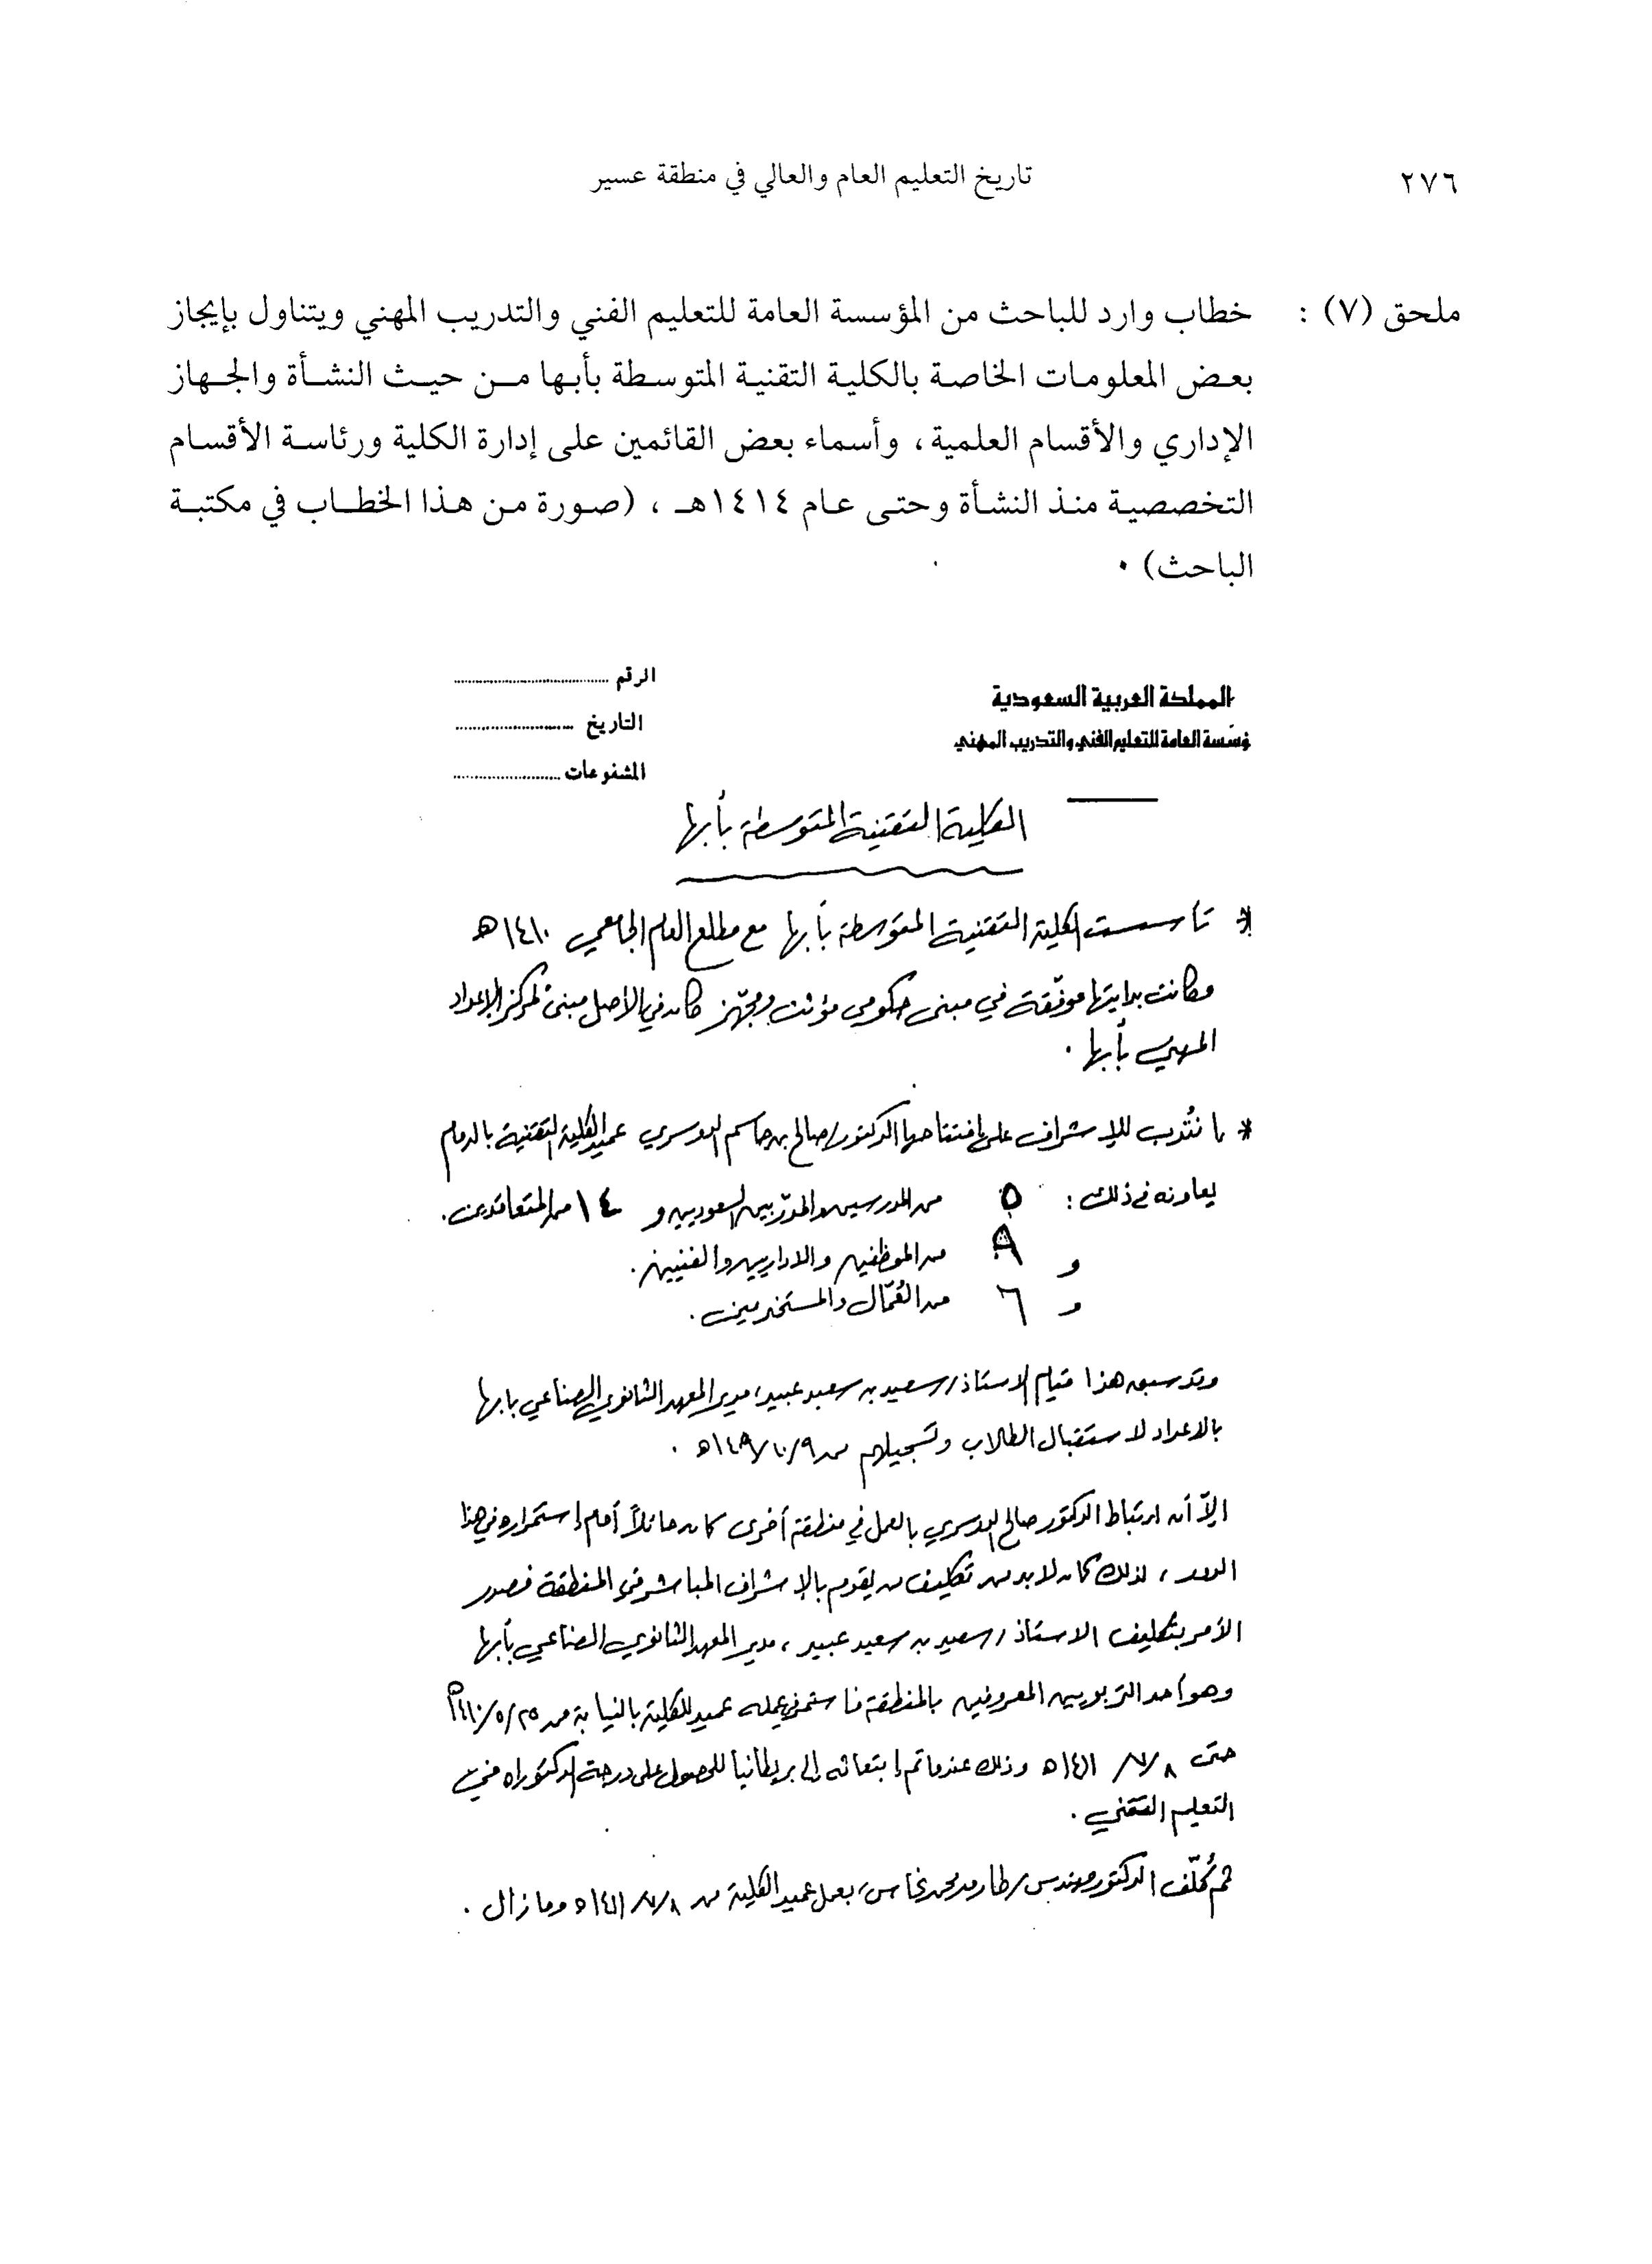 ٢٧٦
تاريخ التعليم العام والعالي في منطقة عسير
ملحق (٧) : خطاب وارد للباحث من المؤسسة العامة للتعليم الفني والتدريب المهني ويتناول بإيجاز
بعض المعلومات الخاصة بالكلية التقنية المتوسطة بأبها من حيث النشأة والجهاز
الإداري والأقسام العلمية ، وأسماء بعض القائمين على إدارة الكلية ورئاسة الأقسام
التخصصية منذ النشأة وحتى عام ١٤١٤هـ ، (صورة من هذا الخطاب في مكتبة
الباحث) .
المملكة العربية السعودية
ؤسسة العامة للتعليم الفني والتدريب المهني
الرقم
التاريخ
المشفوعات
الكلية التقنية المتوسطة بأبها
* تأسست الكلية التقنية المتوسطة بأبها مع مطلع العام الجامعي ١٤١٠هـ
وكانت بدايتها موفّقة في مبنى حكومي مؤثث ومجهّز كان في الأصل مبنىً لمركز الإعداد
المهني بأبها .
* انتُدب للإشراف على افتتاحها الدكتور/صالح بن جاسم الدوسري عميد الكلية التقنية بالدمام
يعاونه في ذلك : ٥ من المدرسين والمدرّبين السعوديين و ١٤ من المتعاقدين .
و ٨ من الموظفين والاداريين والفنيين .
و ٦ من العُمّال والمستخدمين .
وقد سبق هذا قيام الاستاذ/سعيد بن سعيد عبيد، مدير المعهد الثانوي الصناعي بابها
بالاعداد لاستقبال الطلاب وتسجيلهم من ١٤٠٩/١٠/٩هـ .
الاّ أن ارتباط الدكتور صالح الدوسري بالعمل في منطقة أخرى كان حائلاً أمام إستمراره في هذا
، لذلك كان لابد من تكليف من يقوم بالإشراف المباشر في المنطقة فصدر
الأمر بتكليف الاستاذ/سعيد بن سعيد عبيد ، مدير المعهد الثانوي الصناعي بأبها
وهو أحد التربويين المعروفين بالمنطقة فاستمر في عمله عميد للكلية بالنيابة من ١٤١٠/٥/٢٥هـ
حتى ٧/٨/ ١٤١١هـ وذلك عندما تم إبتعاثه إلى بريطانيا للحصول على درجة الدكتوراه في
التعليم التقني .
ثم كُلّف الدكتور مهندس/طارق محمد نحاس، بعمل عميد الكلية من ١٤١١/٧/٨هـ وما زال .